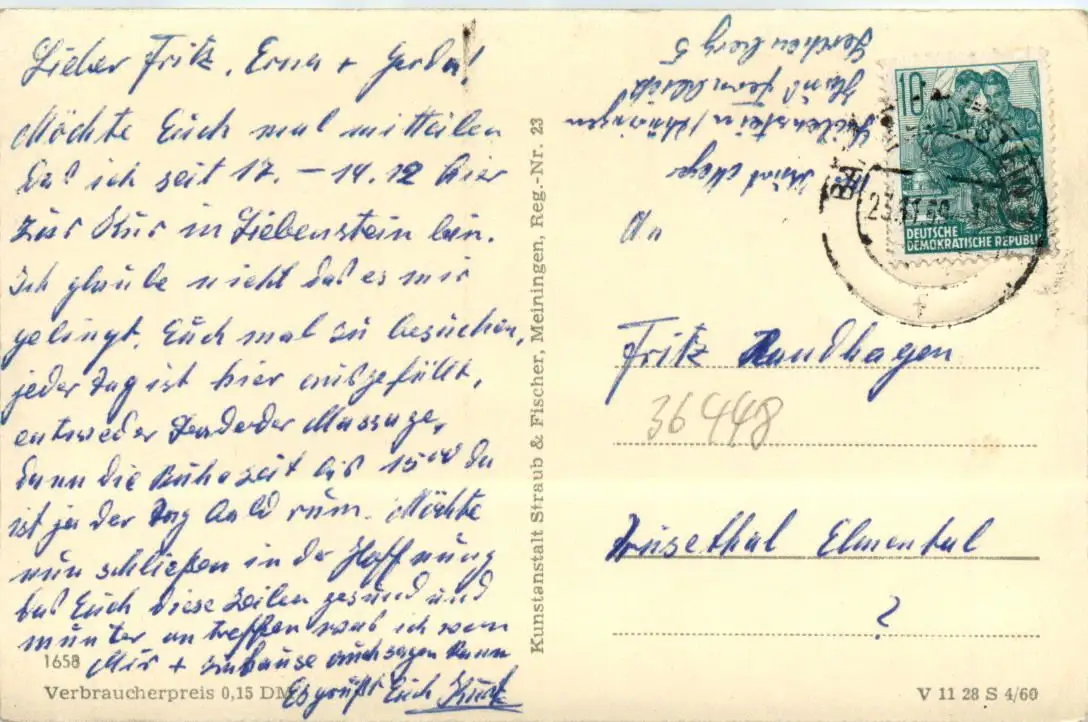 Lieber Fritz, Erna + Gerda!
Möchte Euch mal mitteilen
das ich seit 17. – 14.12 hier
zur Kur in Liebenstein bin.
Ich glaube nicht das es mir
gelingt, Euch mal zu besuchen,
jeder Tag ist hier ausgefüllt,
entweder oder Massage,
dann die Ruhezeit bis 15⁰⁰ da
ist ja der Tag bald rum. Möchte
nun schließen in der Hoffnung
das Euch diese Zeilen gesund und
munter antreffen was ich von
Mir + zuhause auch sagen kann
Es grüßt Euch Kurt
1658
Verbraucherpreis 0,15 DM
Kunstanstalt Straub & Fischer, Meiningen, Reg.-Nr. 23
Kurt
Liebenstein/Thüringen
Heinrich
5
10
DEUTSCHE
DEMOKRATISCHE REPUBLIK
BAD LIEBENSTEIN
23.11.60
An
Fritz Randhagen
36448
Trusethal Elmental
?
V 11 28 S 4/60